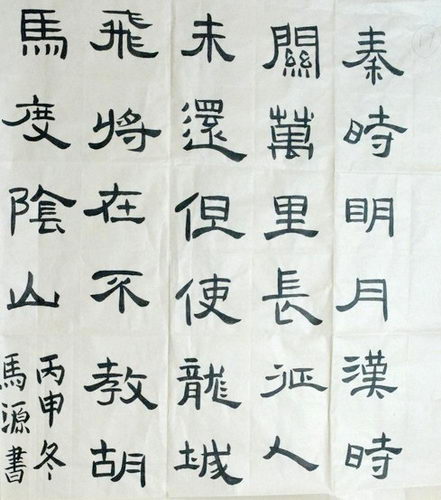 秦時明月漢時
關萬里長征人
未還但使龍城
飛將在不教胡
馬度陰山
丙申冬
馬源書